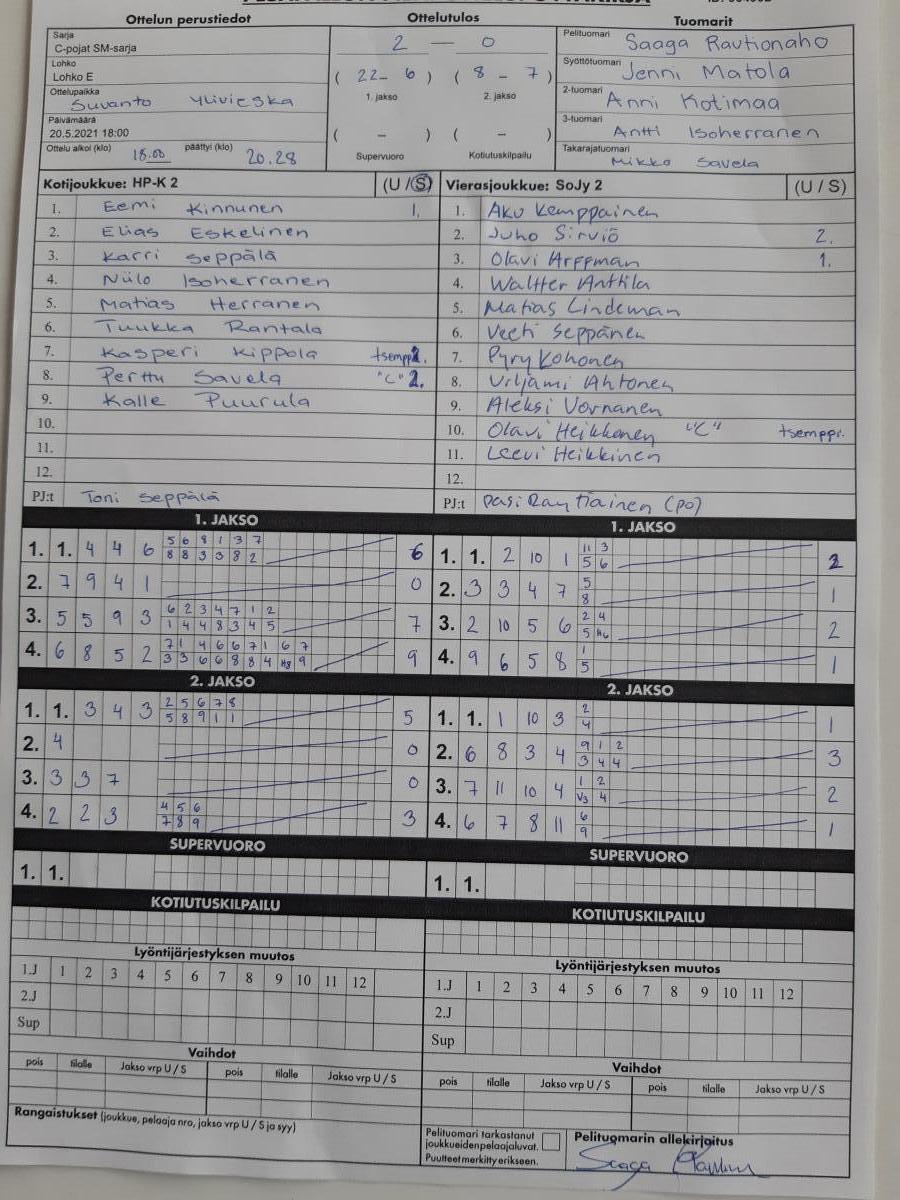 Ottelun perustiedot
Sarja
C-pojat SM-sarja
Lohko
Lohko E
Ottelupaikka
Suvanto Ylivieska
Päivämäärä
20.5.2021 18:00
Ottelu alkoi (klo) 18.00 päättyi (klo) 20.28
Ottelutulos
2 — 0
( 22 - 6 ) ( 8 - 7 )
1. jakso 2. jakso
( - ) ( - )
Supervuoro Kotiutuskilpailu
Tuomarit
Pelituomari Saaga Rautionaho
Syöttötuomari Jenni Matola
2-tuomari Anni Kotimaa
3-tuomari Antti Isoherranen
Takarajatuomari Mikko Savela
Kotijoukkue: HP-K 2 (U / S)
1. Eemi Kinnunen 1.
2. Elias Eskelinen
3. Karri Seppälä
4. Niilo Isoherranen
5. Matias Herranen
6. Tuukka Rantala
7. Kasperi Kippola tsemppi.
8. Perttu Savela "C" 2.
9. Kalle Puurula
10.
11.
12.
PJ:t Toni Seppälä
Vierasjoukkue: SoJy 2 (U / S)
1. Aku Kemppainen
2. Juho Sirviö 2.
3. Olavi Arffman 1.
4. Waltter Anttila
5. Matias Lindeman
6. Veeti Seppänen
7. Pyry Kohonen
8. Viljami Ahtonen
9. Aleksi Vornanen
10. Olavi Heikkonen "C" tsemppi.
11. Leevi Heikkinen
12.
PJ:t Pasi Rautiainen (po)
1. JAKSO
1. 1. 4 4 6 5 6 8 1 3 7 6
8 8 3 3 8 2
2. 7 9 4 1 0
3. 5 5 9 3 6 2 3 4 7 1 2 7
1 4 4 8 3 4 5
4. 6 8 5 2 7 1 4 6 6 7 1 6 7 9
3 3 6 6 8 8 4 9
1. JAKSO
1. 1. 2 10 1 11 3 2
5 6
2. 3 3 4 7 5 1
8
3. 2 10 5 6 2 4 2
5
4. 9 6 5 8 1 1
5
2. JAKSO
1. 1. 3 4 3 2 5 6 7 8 5
5 8 9 1 1
2. 4 0
3. 3 3 7 0
4. 2 2 3 4 5 6 3
7 8 9
2. JAKSO
1. 1. 1 10 3 2 1
4
2. 6 8 3 4 9 1 2 3
3 4 4
3. 7 11 10 4 1 2 2
V3 4
4. 6 7 8 11 6 1
9
SUPERVUORO
1. 1.
SUPERVUORO
1. 1.
KOTIUTUSKILPAILU
KOTIUTUSKILPAILU
Lyöntijärjestyksen muutos
1.J 1 2 3 4 5 6 7 8 9 10 11 12
2.J
Sup
Lyöntijärjestyksen muutos
1.J 1 2 3 4 5 6 7 8 9 10 11 12
2.J
Sup
Vaihdot
pois tilalle Jakso vrp U / S pois tilalle Jakso vrp U / S
Vaihdot
pois tilalle Jakso vrp U / S pois tilalle Jakso vrp U / S
Rangaistukset (joukkue, pelaaja nro, jakso vrp U / S ja syy)
Pelituomari tarkastanut
joukkueiden pelaajaluvat.
Puutteet merkitty erikseen.
Pelituomarin allekirjoitus
Saaga